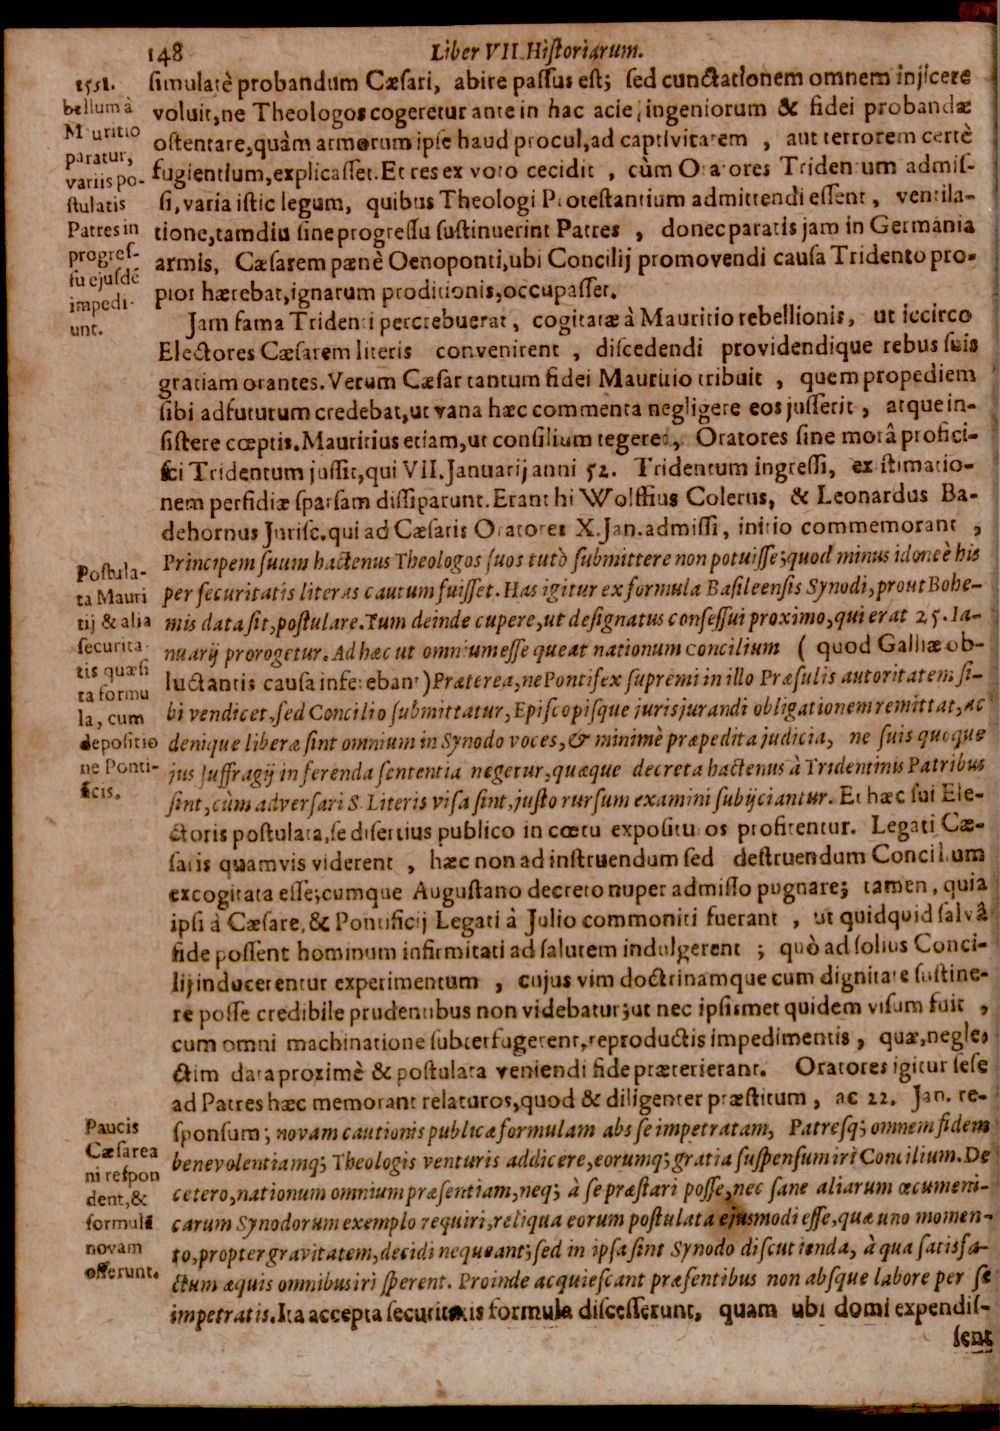 148
Liber VII. Historiarum.
1551.
bellum à
Mauritio
paratur,
variis po-
stulatis
Patres in
progres-
su ejusdē
impedi-
unt.
simulatè probandum Cæsari, abire passus est; sed cunctationem omnem injicere
voluit, ne Theologos cogeretur ante in hac acie, ingeniorum & fidei probandæ
ostentare, quàm armorum ipse haud procul, ad captivitatem , aut terrorem certè
fugientium, explicasset. Et res ex voto cecidit , cùm Oratores Tridentum admis-
si, varia istic legum, quibus Theologi Protestantium admittendi essent, ventila-
tione, tamdiu sine progressu sustinuerint Patres , donec paratis jam in Germania
armis, Cæsarem pænè Oenoponti, ubi Concilij promovendi causa Tridento pro-
pior hærebat, ignarum proditionis, occupasset.
Jam fama Tridenti percrebuerat, cogitatæ à Mauritio rebellionis, ut iccirco
Electores Cæsarem literis convenirent , discedendi providendique rebus suis
gratiam orantes. Verum Cæsar tantum fidei Mauritio tribuit , quem propediem
sibi adfuturum credebat, ut vana hæc commenta negligere eos jusserit, atque in-
sistere cœptis. Mauritius etiam, ut consilium tegeret, Oratores sine morâ profici-
sci Tridentum jussit, qui VII. Januarij anni 52. Tridentum ingressi, existimatio-
nem perfidiæ sparsam dissiparunt. Erant hi Wolffius Colerus, & Leonardus Ba-
dehornus Jurisc. qui ad Cæsaris Oratores X. Jan. admissi, initio commemorant ,
Postula-
ta Mauri
tij & alia
securita-
tis quæsi
ta formu
la, cum
depositio
ne Ponti-
ficis.
Principem suum hactenus Theologos suos tutò submittere non potuisse; quod minus idoneè his
per securitatis literas cautum fuisset. Has igitur ex formula Basileensis Synodi, prout Bohe-
mis data sit, postulare. Tum deinde cupere, ut designatus confessui proximo, qui erat 25. Ia-
nuarij prorogetur. Ad hæc ut omnium esse queat nationum concilium ( quod Galliæ ob-
luctantis causa inferebant) Præterea, ne Pontifex supremi in illo Præsulis autoritatem si-
bi vendicet, sed Concilio submittatur, Episcopisque jurisjurandi obligationem remittat, ac
denique liberæ sint omnium in Synodo voces, & minimè præpedita judicia, ne suis quoque
jus suffragij in ferenda sententia negetur, quæque decreta hactenus à Tridentinis Patribus
sint, cùm adversari S. Literis visa sint, justo rursum examini subijciantur. Et hæc sui Ele-
ctoris postulata, se disertius publico in cœtu exposituros profitentur. Legati Cæ-
saris quamvis viderent , hæc non ad instruendum sed destruendum Concilium
excogitata esse; cumque Augustano decreto nuper admisso pugnare; tamen, quia
ipsi à Cæsare, & Pontificij Legati à Julio commoniti fuerant , ut quidquid salvâ
fide possent hominum infirmitati ad salutem indulgerent ; quò ad solius Conci-
lij inducerentur experimentum , cujus vim doctrinamque cum dignitate sustine-
re posse credibile prudentibus non videbatur; ut nec ipsismet quidem visum fuit ,
cum omni machinatione subterfugerent, reproductis impedimentis, quæ, negle-
ctim data proximè & postulata veniendi fide præterierant. Oratores igitur sese
ad Patres hæc memorant relaturos, quod & diligenter præstitum, ac 22. Jan. re-
Paucis
Cæsarea
ni respon
dent, &
formulā
novam
offerunt.
sponsum; novam cautionis publicæ formulam abs se impetratam, Patresq; omnem fidem
benevolentiamq; Theologis venturis addicere, eorumq; gratia suspensum iri Concilium. De
cetero, nationum omnium præsentiam, neq; à se præstari posse, nec sane aliarum œcumeni-
carum Synodorum exemplo requiri, reliqua eorum postulata ejusmodi esse, quæ uno momen-
to, propter gravitatem, decidi nequeant; sed in ipsa sint Synodo discutienda, à qua satisfa-
ctum æquis omnibus iri sperent. Proinde acquiescant præsentibus non absque labore per se
impetratis. Ita accepta securitatis formula discesserunt, quam ubi domi expendis-
sent